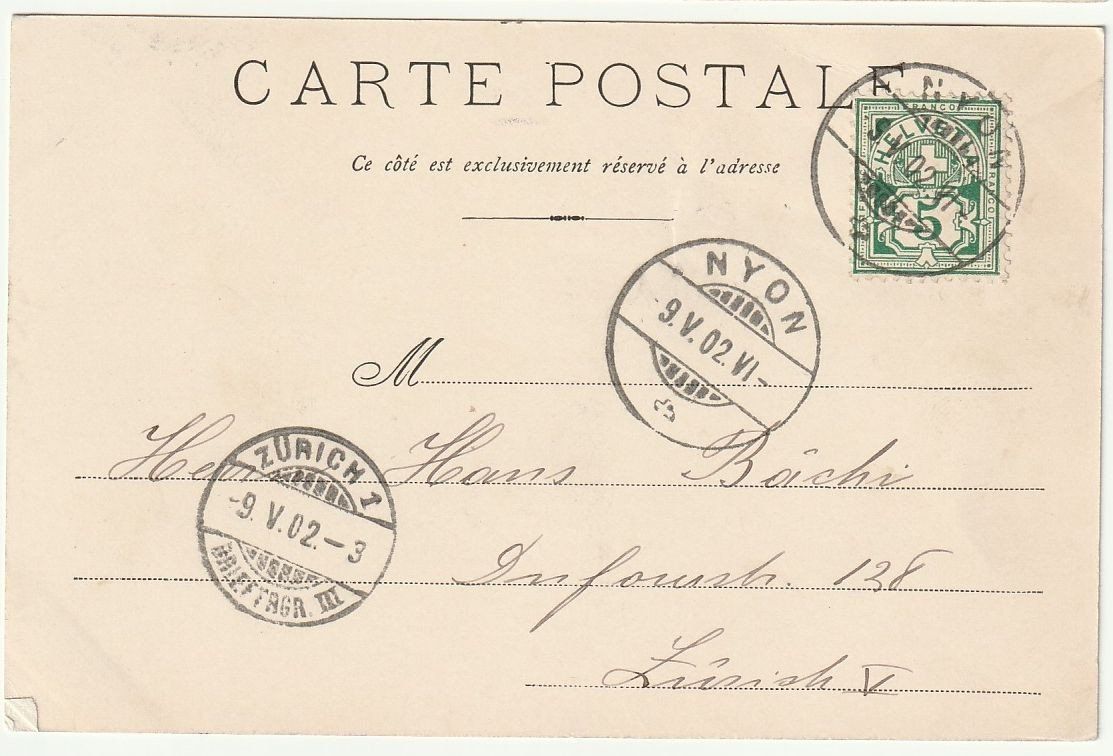 CARTE POSTALE
Ce côté est exclusivement réservé à l'adresse
NYON
9.V.02.VI-
FRANCO
HELVETIA
FRANCO
5
NYON
-9.V.02.VI-
M
Herr Hans Bächi
ZÜRICH 1
-9.V.02.-3
BRIEFTRGR. III
138
Zürich V